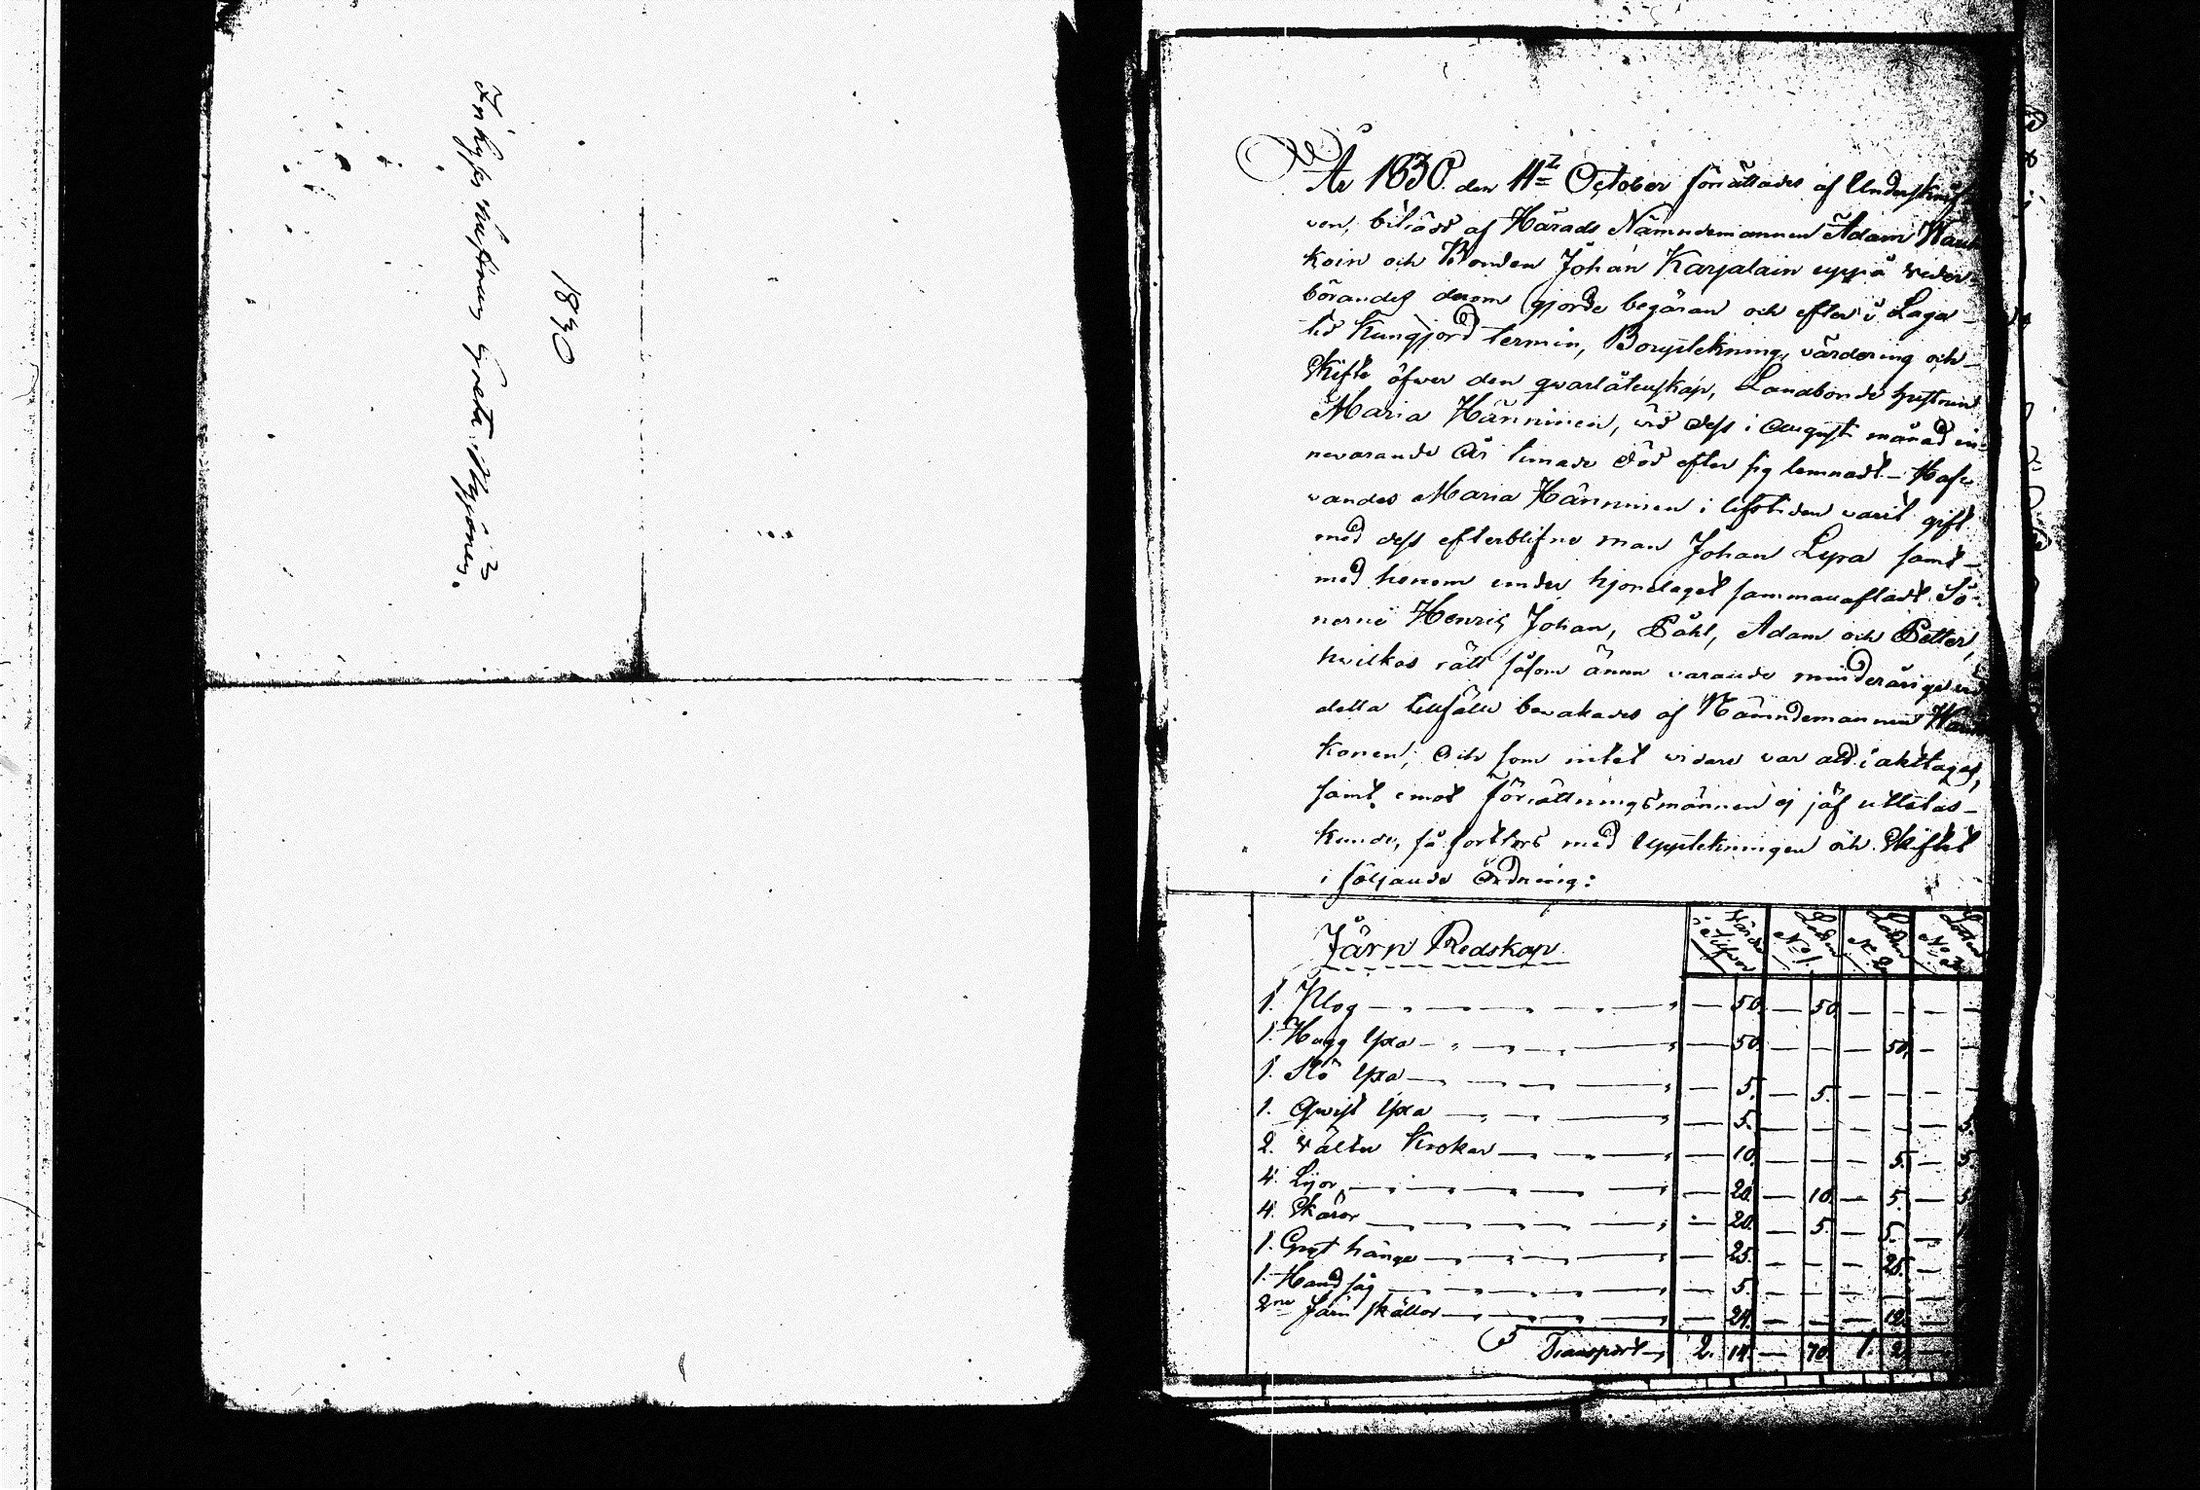 Inhyses hustrun Greta Nyyönen.
1830
År 1830 den 11te October förrättades af Underskrif
ven, biträdd af Härads Nämndemannen Adam Hauk
koin och Bonden Johan Karjalain uppå weder-
börandes derom gjorde begäran och efter i Laga
tid Kungjord termin, Bouptekning, värdering och
Skifte öfwer den qwarlåtenskap, Landbonde hustrun
Maria Hänninen, vid dess i August månad in-
nevarande År timade död efter sig lemnadt - Haf-
vandes Maria Hänninen i lifstiden varit gift
med dess efterblifne man Johan Lypa samt
med honom under hjonelaget sammanaflat Sö-
nerne Henric, Johan, Påhl, Adam och Petter,
hvilkas rätt såsom ännu varande minderårige vid
detta tillfälle bevakades af Nämndemannen Hauk
konen; Och som intet vidare var att iakttagas,
samt emot förrättningsmännen ej jäf uttetas
kunde, så fortfors med Upptekningen och Skiftet
i följande Ordning:
Järn Redskap Värde i Silfver Lotten No 1. Lotten No 2. Lotten No 3.
1. Plog — 50. — 50. — — — —
1. Hugg Yxa — 50. — — — 50. — —
1. Slö Yxa — 5. — 5. — — — —
1. Qwist Yxa — 5. — — — — — 5.
2. Vältu Krokar — 10. — — — 5. — 5.
4. Lijor — 20. — 10. — 5. — 5.
4. Skäror — 20. — 5. — 5. —
1. Gryt hänge — 25. — — — 25. —
1. Hand såg — 5. — — — — —
2ne Järn skällor — 24. — — — 12. —
Transport 2. 14. — 70. 1. 2. —